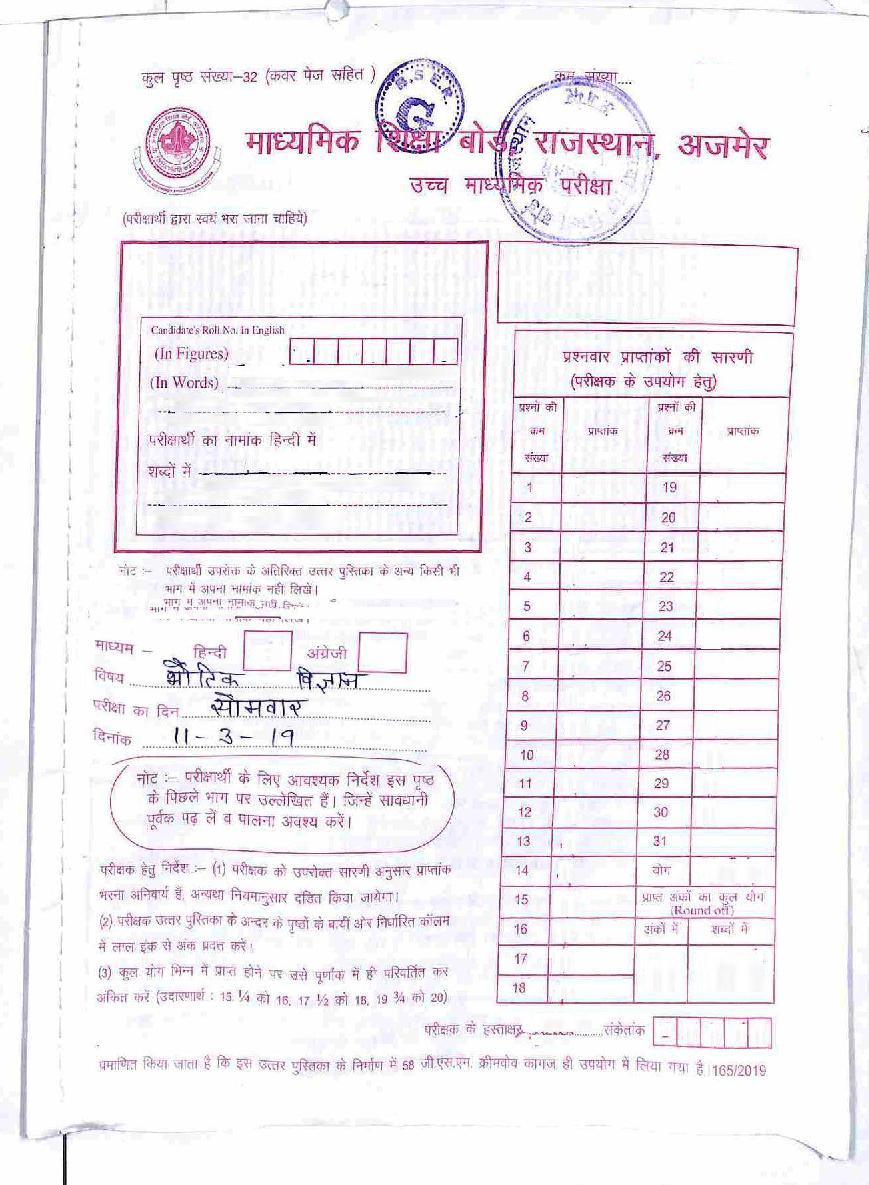 कुल पृष्ठ संख्या–32 (कवर पेज सहित )
क्रम संख्या....
B.S.E.R.
G
माध्यमिक शिक्षा बोर्ड राजस्थान, अजमेर
उच्च माध्यमिक परीक्षा
(परीक्षार्थी द्वारा स्वयं भरा जाना चाहिये)
Candidate's Roll.No. In English
(In Figures)
(In Words)
परीक्षार्थी का नामांक हिन्दी में
शब्दों में
नोट :– परीक्षार्थी उपरोक्त के अतिरिक्त उत्तर पुस्तिका के अन्य किसी भी
भाग में अपना नामांक नहीं लिखें।
माध्यम – हिन्दी अंग्रेजी
विषय भौतिक विज्ञान
परीक्षा का दिन सोमवार
दिनांक 11-3-19
नोट :– परीक्षार्थी के लिए आवश्यक निर्देश इस पृष्ठ
के पिछले भाग पर उल्लेखित हैं। जिन्हें सावधानी
पूर्वक पढ़ लें व पालना अवश्य करें।
परीक्षक हेतु निर्देश :– (1) परीक्षक को उपरोक्त सारणी अनुसार प्राप्तांक
भरना अनिवार्य है, अन्यथा नियमानुसार दंडित किया जायेगा।
(2) परीक्षक उत्तर पुस्तिका के अन्दर के पृष्ठों के बायीं ओर निर्धारित कॉलम
में लाल इंक से अंक प्रदत्त करें।
(3) कुल योग भिन्न में प्राप्त होने पर उसे पूर्णांक में ही परिवर्तित कर
अंकित करें (उदारणार्थ : 15 ¼ को 16, 17 ½ को 18, 19 ¾ को 20)
प्रश्नवार प्राप्तांकों की सारणी
(परीक्षक के उपयोग हेतु)
प्रश्नों की क्रम संख्या प्राप्तांक प्रश्नों की क्रम संख्या प्राप्तांक
1 19
2 20
3 21
4 22
5 23
6 24
7 25
8 26
9 27
10 28
11 29
12 30
13 31
14 योग
15 प्राप्त अंकों का कुल योग
(Round off)
16 अंकों में शब्दों में
17
18
परीक्षक के हस्ताक्षर संकेतांक
प्रमाणित किया जाता है कि इस उत्तर पुस्तिका के निर्माण में 58 जी.एस.एम. क्रीमवोव कागज ही उपयोग में लिया गया है।165/2019